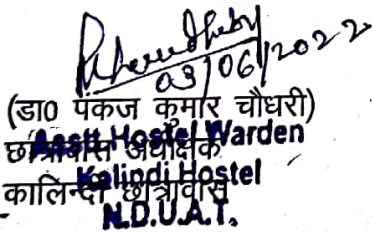 03/06/2022
(डा0 पंकज कुमार चौधरी)
Asstt Hostel Warden
छात्रावास अधीक्षक
Kalindi Hostel
कालिन्दी छात्रावास
N.D.U.A.T.